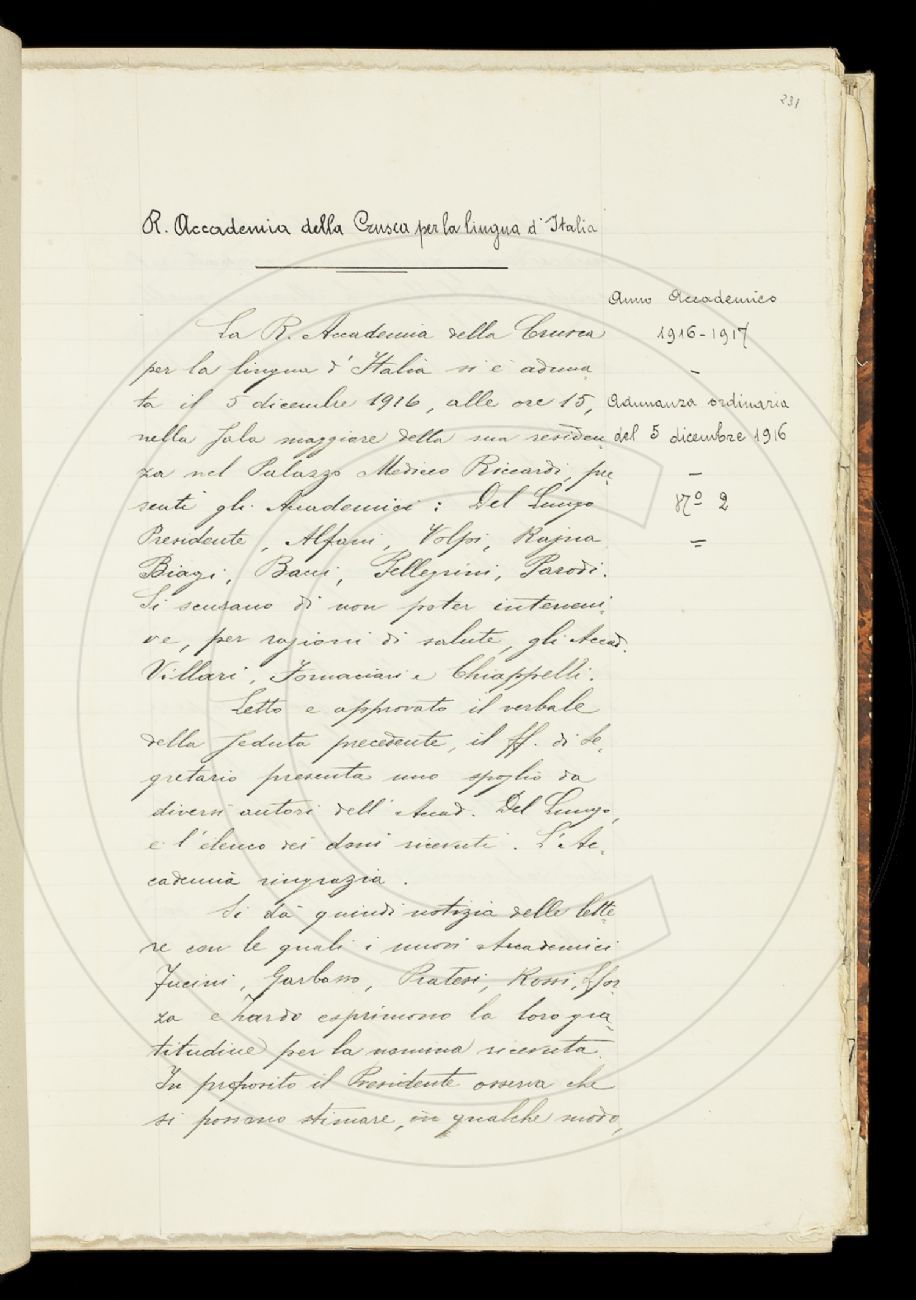 231
R. Accademia della Crusca per la lingua d'Italia
Anno Accademico
1916-1917
Adunanza ordinaria
del 5 dicembre 1916
Nº 2
La R. Accademia della Crusca
per la lingua d'Italia si è aduna
ta il 5 dicembre 1916, alle ore 15,
nella Sala maggiore della sua residen
za nel Palazzo Mediceo Riccardi, pre
senti gli Accademici: Del Lungo
Presidente, Alfani, Volpi, Rajna
Biagi, Bacci, Pellegrini, Parodi.
Si scusano di non poter interveni-
re, per ragioni di salute, gli Accad.
Villari, Fornaciari e Chiappelli.
Letto e approvato il verbale
della seduta precedente, il ff. di Se-
gretario presenta uno spoglio da
diversi autori dell'Accad. Del Lungo,
e l'elenco dei doni ricevuti. L'Ac-
cademia ringrazia.
Si dà quindi notizia delle lette-
re con le quali i nuovi Accademici
Fucini, Garbasso, Pratesi, Rossi, Sfor
za e Zardo esprimono la loro gra-
titudine per la nomina ricevuta.
In proposito il Presidente osserva che
si possano stimare, in qualche modo,